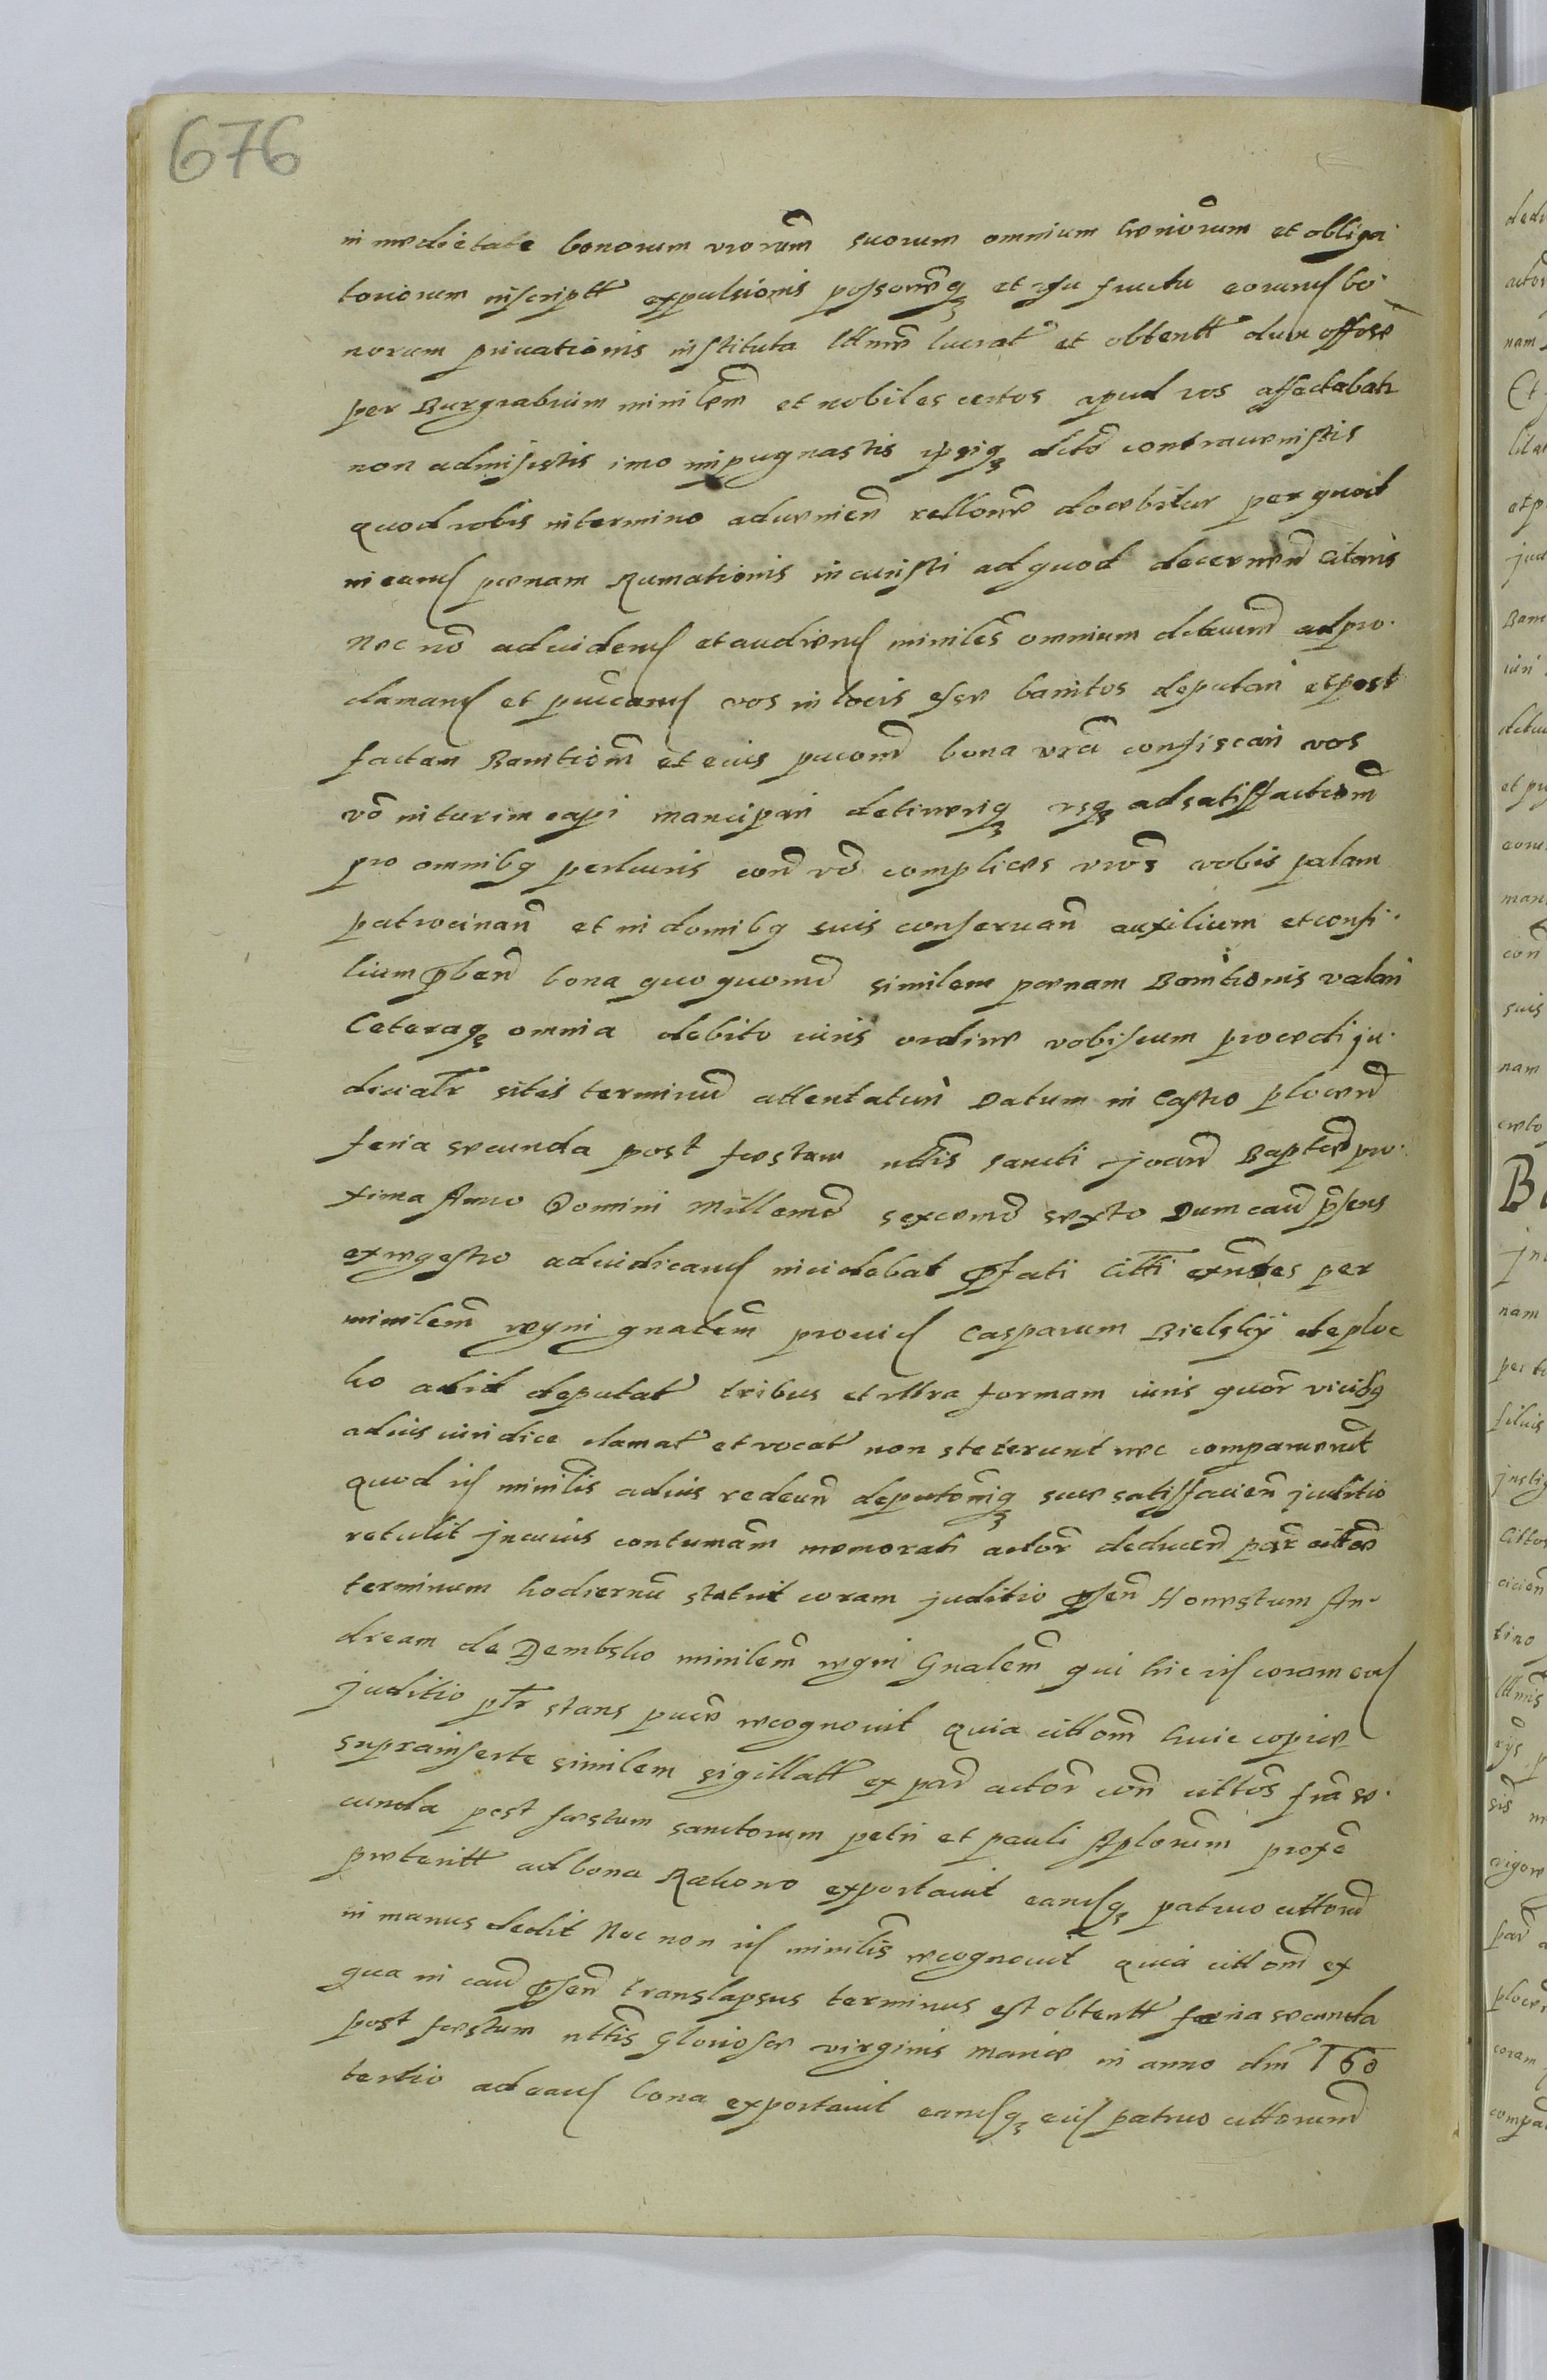 676
in medietate bonorum vrorum suorum omnium hæriorum et obliga
toriorum inscriptt expulsionis possonisq et usu fructu eorund bo
norum privationis instituta lttme lucrat et obtentt dum offose
per Burgrabium minilem et nobiles certos apud vos affectabat
non admisistis imo inpugnastis ipsiq dcto contravenistis
quod vobis in termino advenien rellone docebitur per quod
in eand pœnam Rumationis incuristi ad quod decernend citamis
nec no ad vidend et audiend miniles omnium dctrumd ad pro
clamand et puicand vos in locis esse banitos deputari et post
factam Banitiom et eius puomd bona vra confiscari vos
vo in turim capi mancipari detineriq usq ad satisffactiom
pro omnibq perlucris cond vo complices vros vobis palam
patrocinan et in domibq suis conservan auxilium et consi
lium pben bona quoquomd similem pœnam Banitionis valari
Ceteraq omnia debito iuris ordine vobiscum procedi ju
diciatr sitis terminud attentaturi Datum in Castro plocend
feria secunda post festam nttis sancti joand Bapte pro
xima Anno Domini Millemd sexcemd sexto Dum caud psens
ex regestro adiudicand incidebat pfati citti exntes per
minilem regni gnalem provid Casparum Bielsky de ploc
ko ad id deputat tribus et ultra formam iuris quor vicibq
ad ius iuridice clamat et vocat non steterunt nec comparuernt
quod id minilis ad ius redeun deputoniq suæ satisffacien juditio
retulit In cuius contumam memorati actor deducen par citte
terminum hodiernu statuit coram juditio psen Honestum An
dream de Dembsko minilem regni Gnalem qui hic id coram eod
juditio ptr stans puice recognovit quia cittom huic copiæ
suprainserte similem sigillatt ex par actor con cittos fria se
cunda post festum sanctorum petri et pauli Aplorum proxe
preteritt ad bona Rakowo exportavit eandq patruo cittorum
in manus dedit Nec non id minilis recognovit quia cittom ex
qua in caud psen translapsus terminus est obtentt feria secunda
post festum nttis Gloriosæ virginis Mariæ in anno dni 160
tertio ad eand bona exportavit eandq eid patruo cittorumd